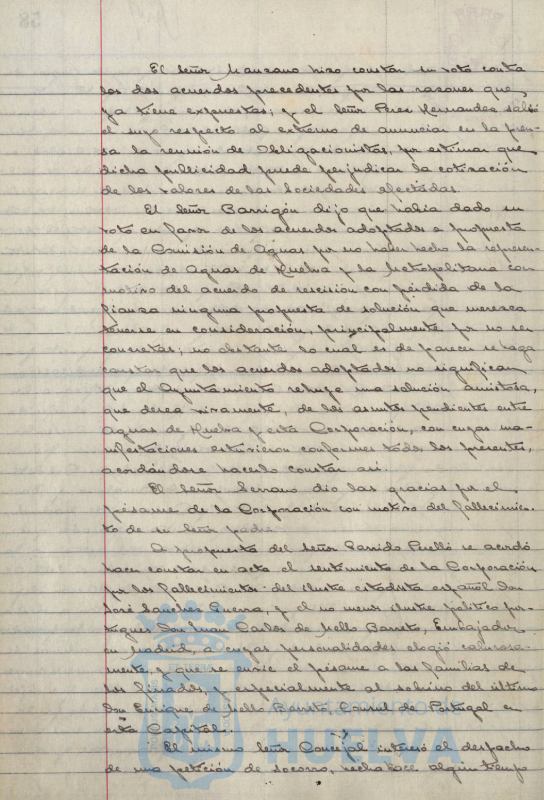 El Señor Manzano hizo constar su voto contra
los dos acuerdos precedentes por las razones que
ya tiene expuestas; y el Señor Perez Hernandez salvó
el suyo respecto al extremo de anunciar en la pren-
sa la reunión de Obligacionistas, por estimar que
dicha publicidad puede perjudicar la cotización
de los valores de las Sociedades afectadas.
El Señor Barrigón dijo que había dado su
voto en favor de los acuerdos adoptados a propuesta
de la Comisión de Aguas por no haber hecho la represen-
tación de Aguas de Huelva y la Metropolitana con
motivo del acuerdo de rescisión con pérdida de la
fianza ninguna propuesta de solución que merezca
tenerse en consideración, principalmente por no ser
concretas; no obstante lo cual es de parecer se haga
constar que los acuerdos adoptados no significan
que el Ayuntamiento rehuya una solución amistosa,
que desea vivamente, de los asuntos pendientes entre
Aguas de Huelva y esta Corporación, con cuyas ma-
nifestaciones estuvieron conformes todos los presentes,
acordándose hacerlo constar así.
El Señor Serrano dio las gracias por el
pésame de la Corporación con motivo del fallecimien-
to de su Señor padre.
A propuesta del Señor Garrido Perelló se acordó
hacer constar en acta el sentimiento de la Corporación
por los fallecimientos del ilustre estadista español Don
José Sanchez Guerra, y el no menos ilustre político por-
tugues Don Juan Carlos de Mello Barreto, Embajador
en Madrid, a cuyas personalidades elogió calurosa-
mente, y que se envie el pésame a las familias de
los finados, y especialmente al sobrino del último
Don Enrique de Mello Barreto, Consul de Portugal en
esta Capital.
El mismo Señor Concejal interesó el despacho
de una petición de socorro, hecha hace algun tiempo
HUELVA